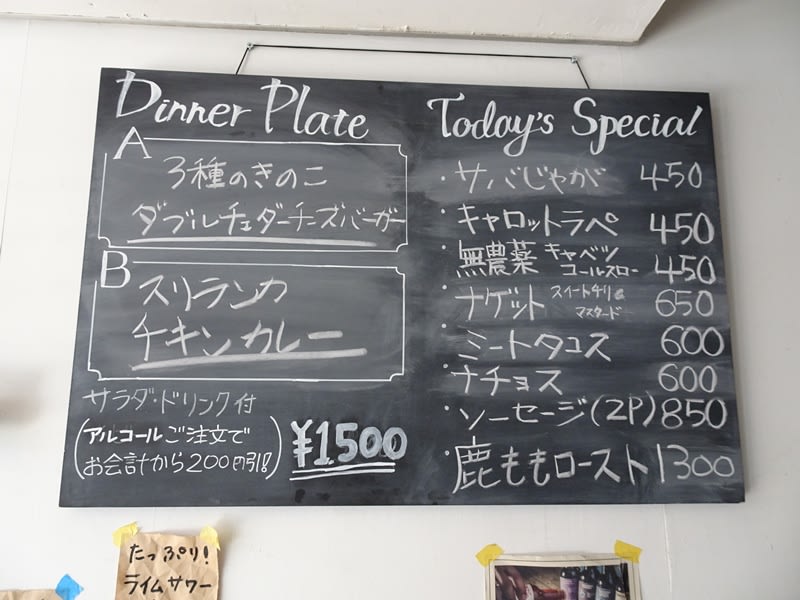 Dinner Plate
A
3種のきのこ
ダブルチェダーチーズバーガー
B
スリランカ
チキンカレー
サラダ・ドリンク付
(アルコールご注文で
お会計から200円引!)
¥1500
Today's Special
・サバじゃが 450
・キャロットラペ 450
・無農薬キャベツコールスロー 450
・ナゲット スイートチリ&マスタード 650
・ミートタコス 600
・ナチョス 600
・ソーセージ(2P) 850
・鹿ももロースト 1300
たっぷり!
ライムサワー